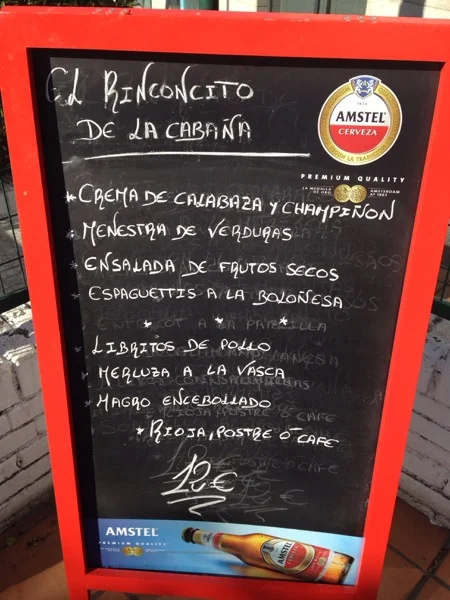 EL RINCONCITO
DE LA CABAÑA
1870
AMSTEL
CERVEZA
PREMIUM QUALITY
LA MEDALLA
DE ORO
AMSTERDAM
Aº 1883
* CREMA DE CALABAZA Y CHAMPIÑON
* MENESTRA DE VERDURAS
* ENSALADA DE FRUTOS SECOS
* ESPAGUETTIS A LA BOLOÑESA
* * *
* LIBRITOS DE POLLO
* MERLUZA A LA VASCA
* MAGRO ENCEBOLLADO
* RIOJA, POSTRE Ó CAFE
12€
AMSTEL
PREMIUM QUALITY
AMSTEL